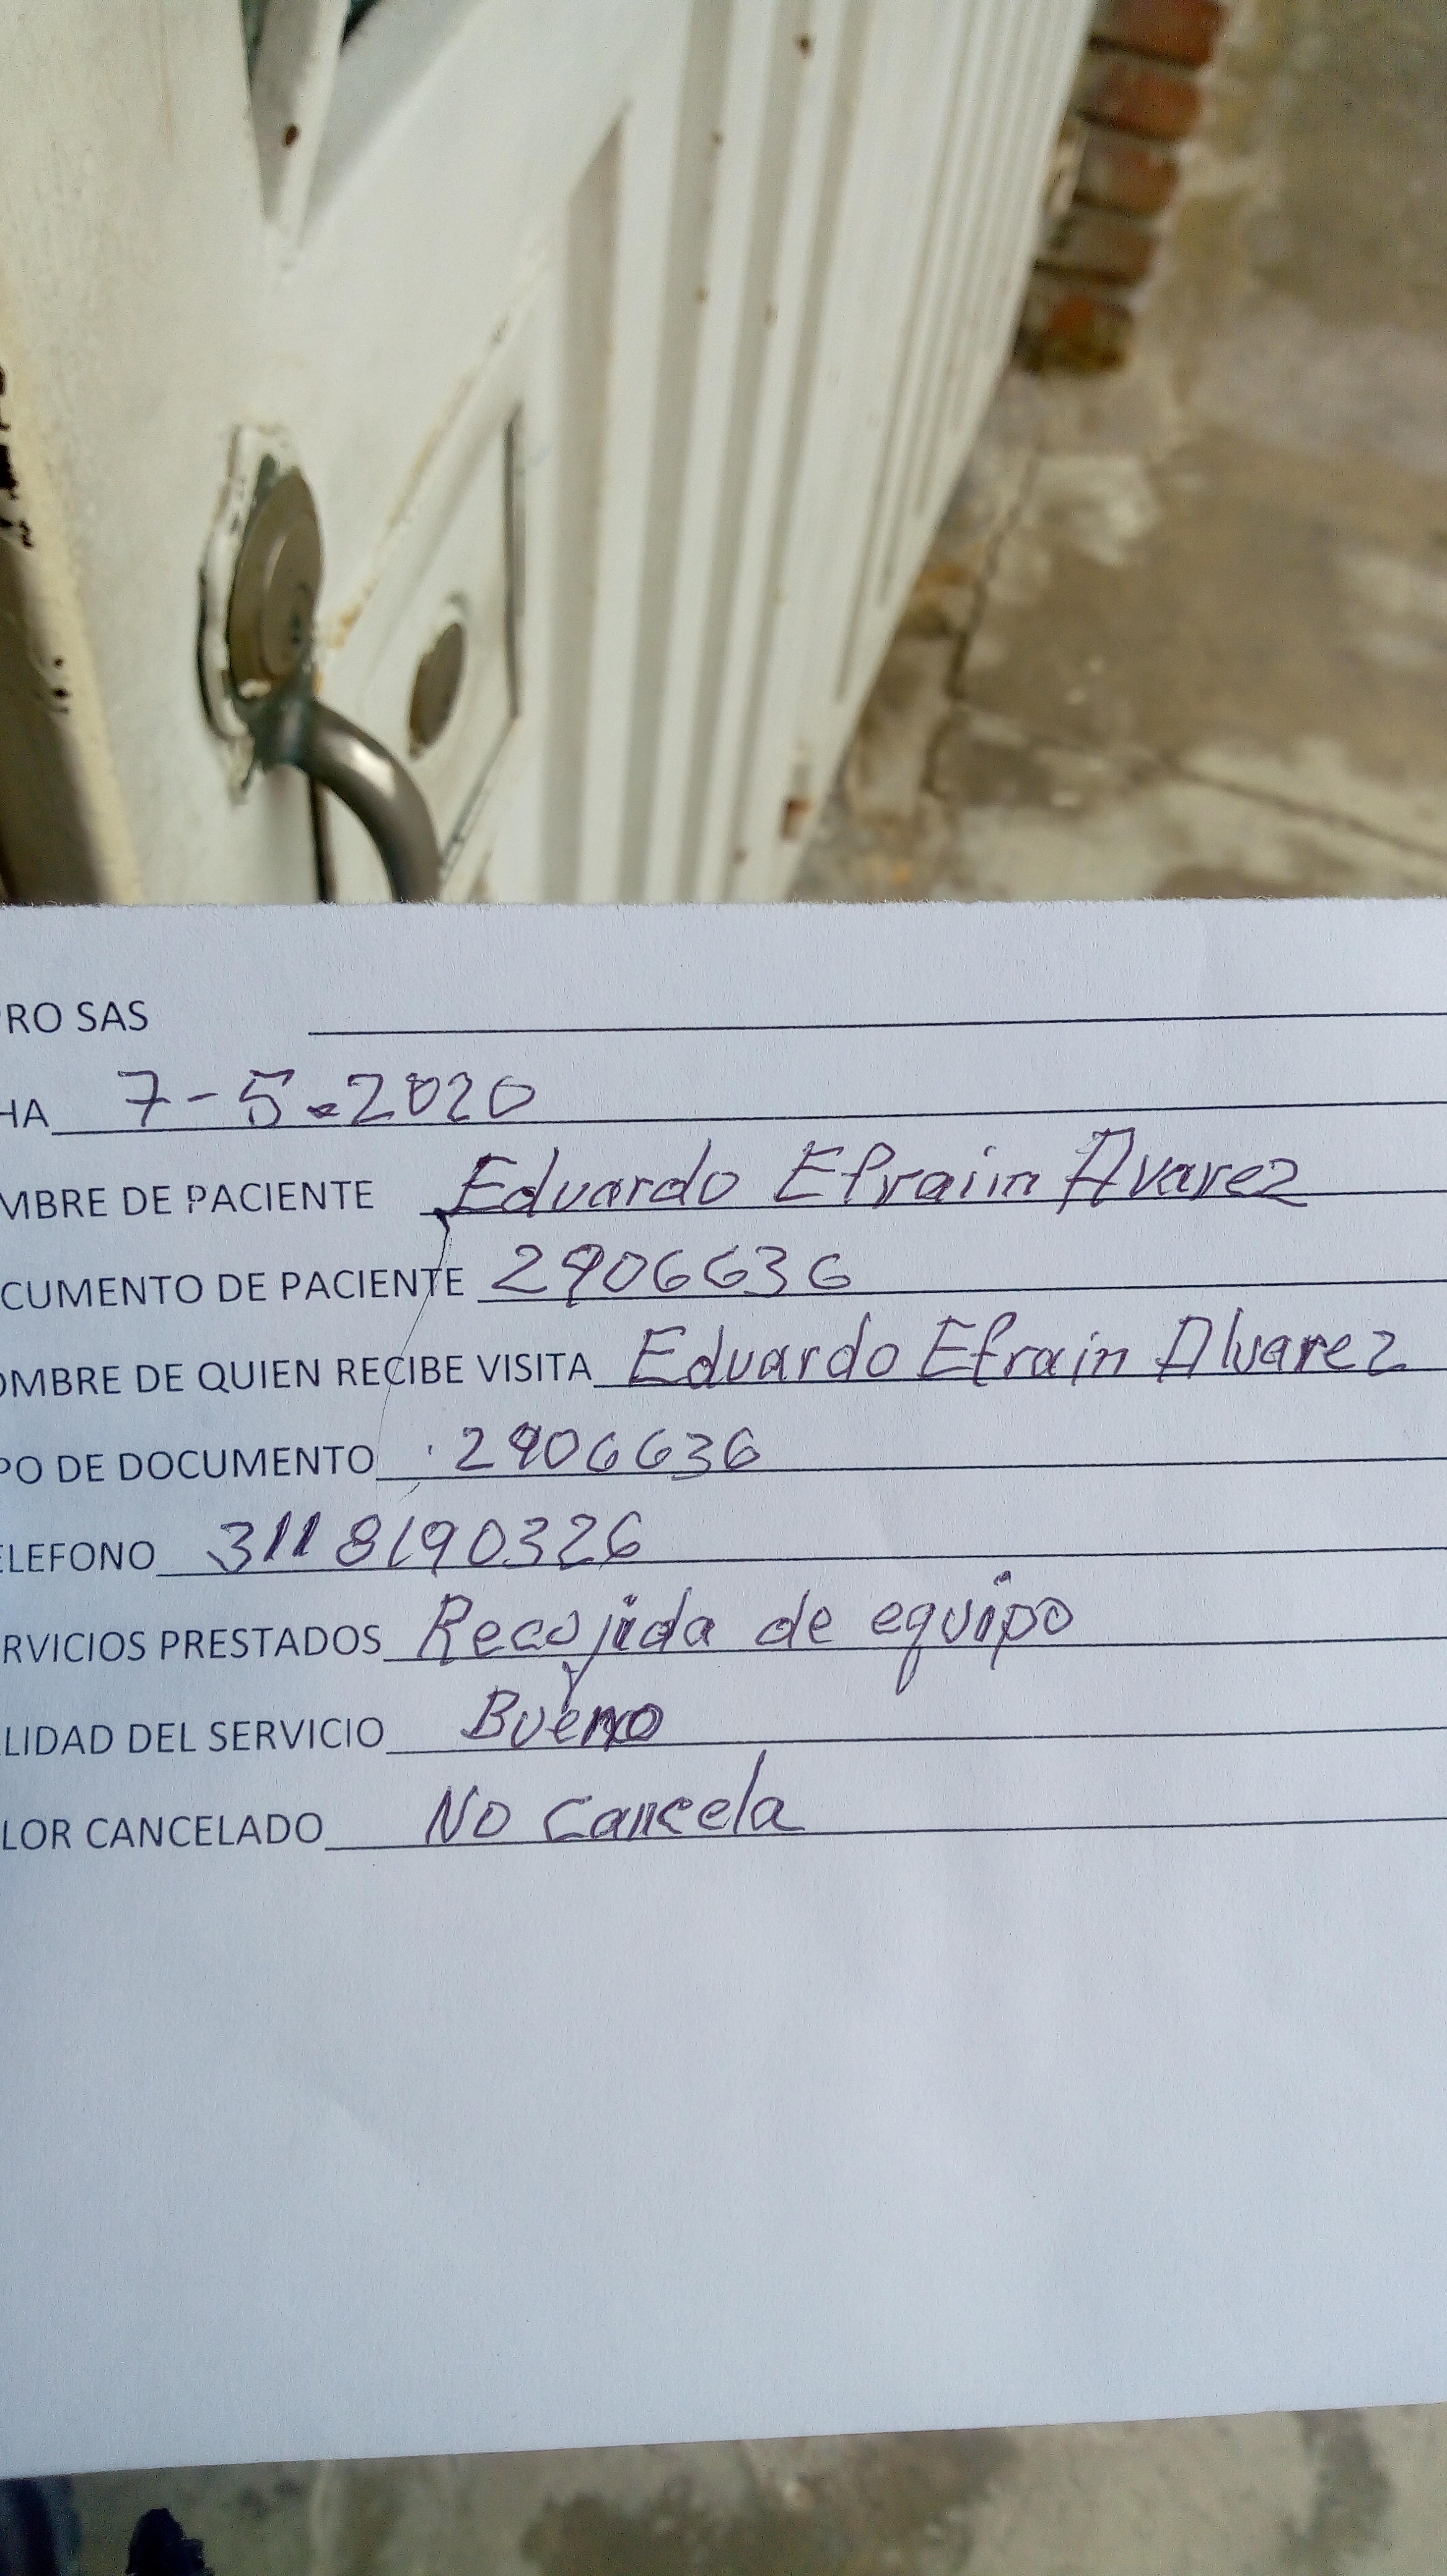 RO SAS
HA 7-5-2020
MBRE DE PACIENTE Eduardo Efraiin Alvarez
CUMENTO DE PACIENTE 2906636
OMBRE DE QUIEN RECIBE VISITA Eduardo Efrain Alvarez
PO DE DOCUMENTO 2906636
LEFONO 3118190326
RVICIOS PRESTADOS Recojida de equipo
LIDAD DEL SERVICIO Bueno
LOR CANCELADO No cancela